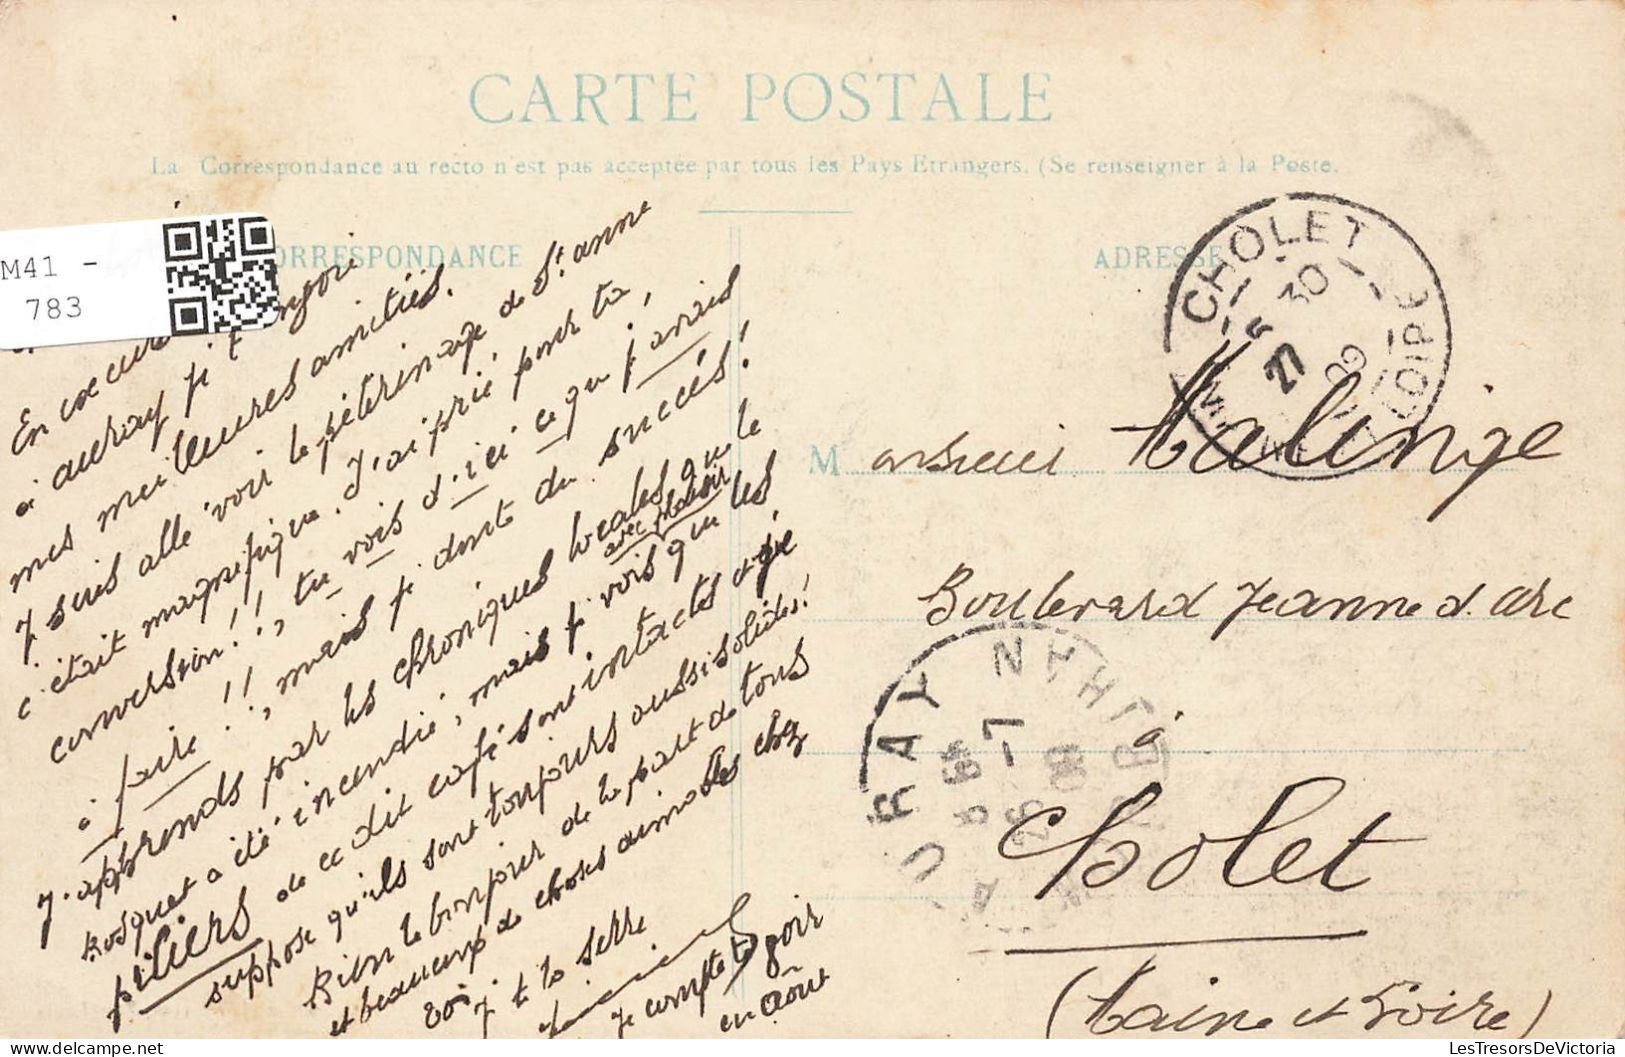 CARTE POSTALE
La Correspondance au recto n'est pas acceptée par tous les Pays Etrangers. (Se renseigner à la Poste.
CORRESPONDANCE
ADRESSE
M41 -
783
En excur
à auray je t'envoie
mes meilleures amitiés.
J suis allé voir le pélerinage de St. anne
c'était magnifique. J'ai prié pour ta
conversion!!, tu vois d'ici ce qu j'avais
à faire!!, mais je doute du succès!
J'apprends par les chroniques locales que le
Bosquet a été incendié, mais je vois avec plaisir qu les
piliers de ce dit café sont intactes et je
suppose qu'ils sont toujours aussi solides!
Bien le bonjour de la part de tous
et beaucoup de choses aimables chez
toi. J te la serre
Je compte te voir
en août
CHOLET
MAINE ET LOIRE
30
27
09
Monsieur Malinge
Boulevard Jeanne d'Arc
à
Cholet
(Maine et Loire)
AURAY
MORBIHAN
26 -7
09
LesTresorsDeVictoria